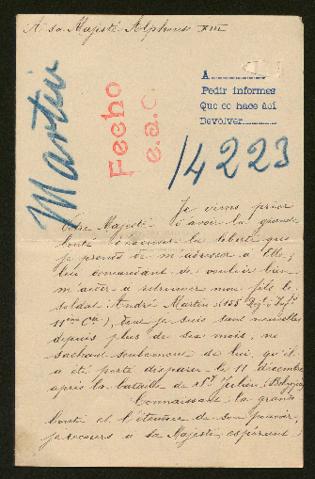 A sa Majesté Alphonse XIII
Martin
Fecho
e.a.c.
A
Pedir informes
Que se hace así
Devolver
14223
Je viens prier
Votre Majesté d'avoir la grande
bonté d'excuser la liberté que
je prends de m'adresser à Elle,
lui demandant de vouloir bien
m'aider à retrouver mon fils le
soldat André Martin (155 Rég. Inf.
11ème Cie), dont je suis sans nouvelles
depuis plus de six mois, ne
sachant seulement de lui, qu'il
a été porté disparu le 11 décembre
après la bataille de St Julien (Belgique
Connaissant la grande
bonté et l'étendue de son pouvoir,
je recours à sa Majesté, espérant